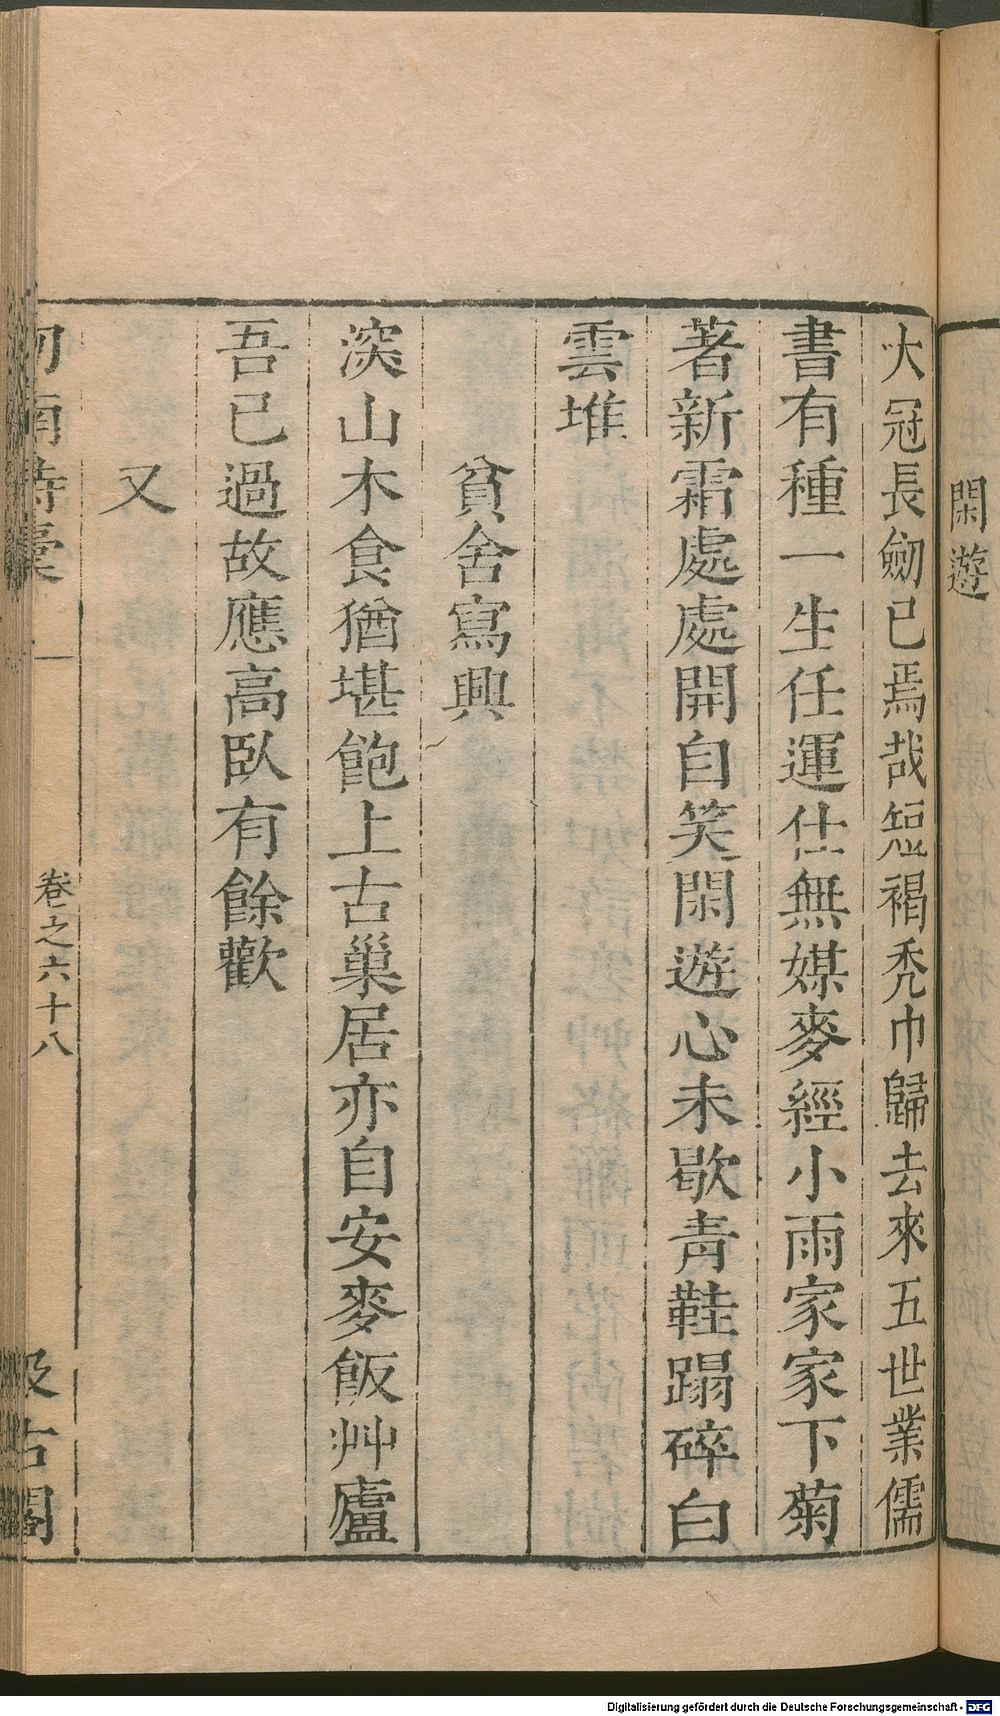 閑遊
大冠長劒已焉哉短褐禿巾歸去來五世業儒
書有種一生任運仕無媒麥經小雨家家下菊
著新霜處處開自笑閑遊心未歇靑鞋蹋碎白
雲堆
貧舍寫興
深山木食猶堪飽上古巢居亦自安麥飯艸廬
吾已過故應高臥有餘歡
又
劒南詩稾
卷之六十八
汲古閣
Digitalisierung gefördert durch die Deutsche Forschungsgemeinschaft - DFG